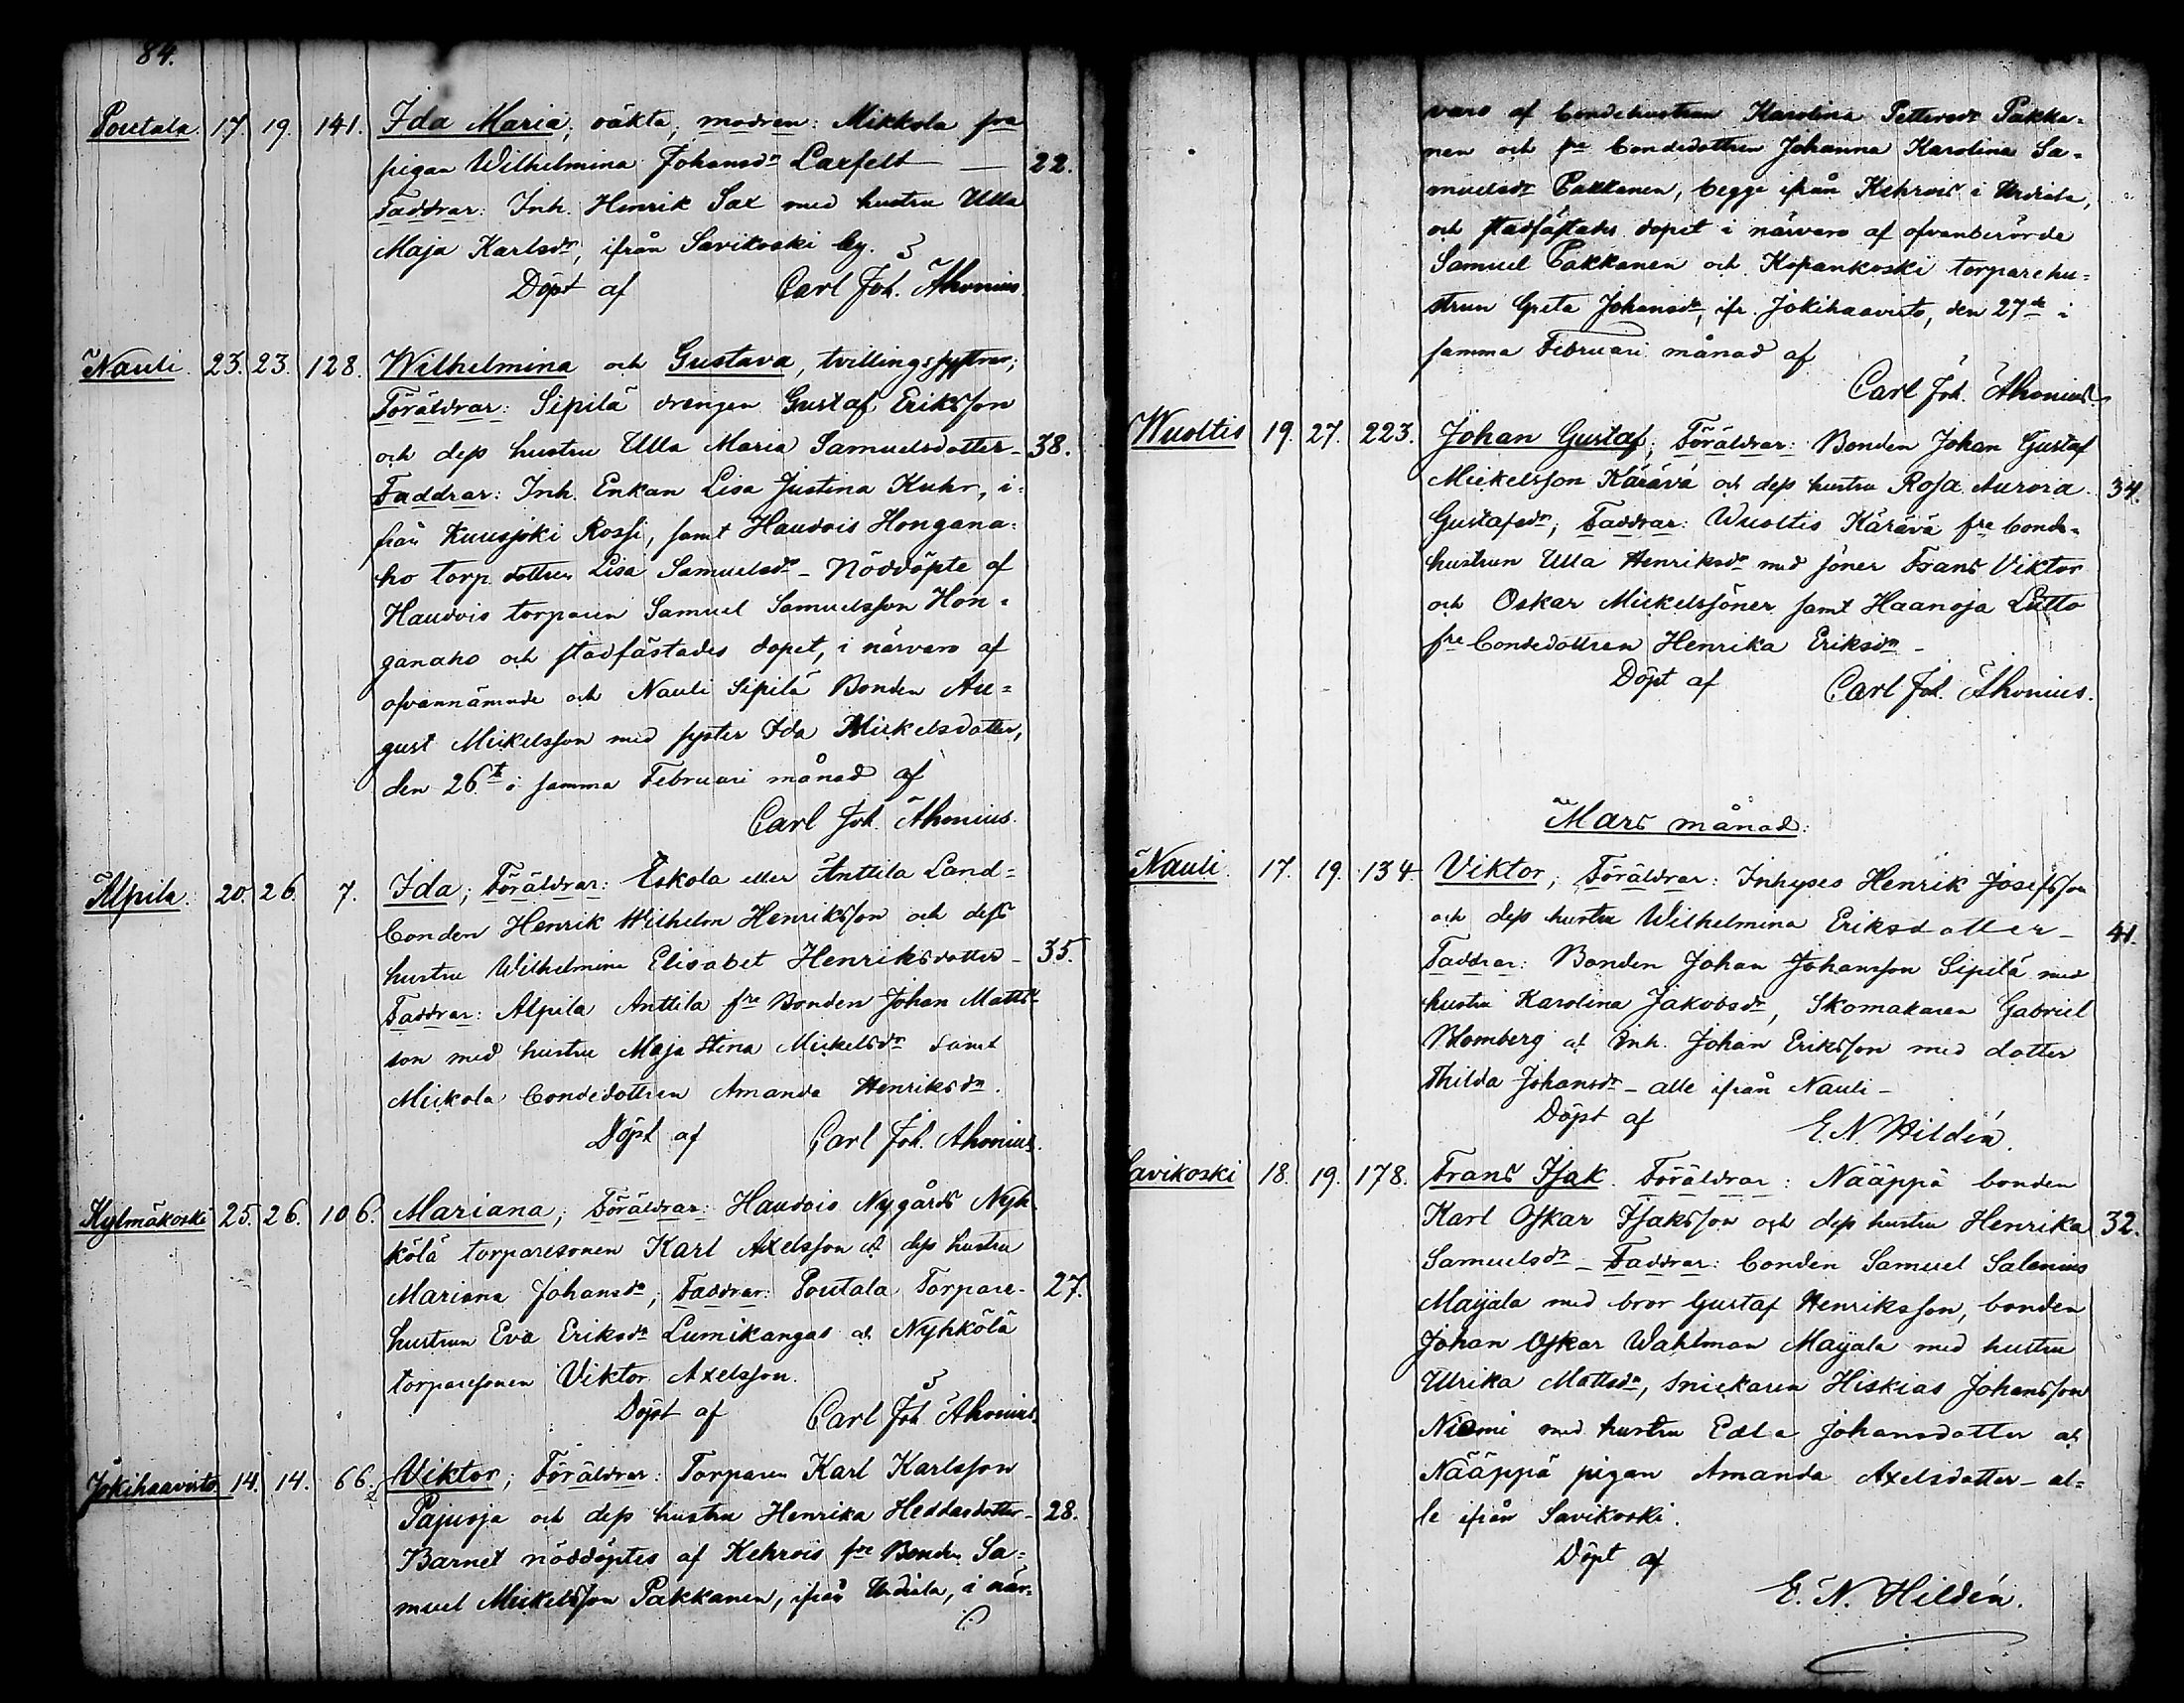 84.
Poutala. 17. 19. 141. Ida Maria, oäkta, modren: Mikkola fra
pigan Wilhelmina Johansdr Laxfelt — 22.
Faddrar: Inh. Henrik Sax med hustru Ulla
Maja Karlsdr, ifrån Savikoski by.
Döpt af Carl Joh. Ahonius.
Nauli. 23. 23. 128. Wilhelmina och Gustava, tvillingsystrar;
Föräldrar: Sipilä drengen Gustaf Eriksson
och dess hustru Ulla Maria Samuelsdotter – 38.
Faddrar: Inh. Enkan Lisa Justina Kuhr, i-
från Kuusjoki Rossi, samt Haudois Hongana=
ho torp. dottren Lisa Samuelsdr – Nöddöpte af
Haudois torparen Samuel Samuelsson Hon=
ganaho och stadfästades dopet, i närvaro af
ofvannämnde och Nauli Sipilä Bonden Au=
gust Mickelsson med syster Ida Mickelsdotter,
den 26te i samma Februari månad af
Carl Joh. Ahonius.
Alpila. 20. 26. 7. Ida; Föräldrar: Eskola eller Anttila Land=
bonden Henrik Wilhelm Henriksson och dess
hustru Wilhelmina Elisabet Henriksdotter – 35.
Faddrar: Alpila Anttila fre Bonden Johan Matts-
son med hustru Maja Stina Mickelsdr samt
Mickola bondedottren Amanda Henriksdr.
Döpt af Carl Joh. Ahonius.
Kylmäkoski 25. 26. 106. Mariana; Föräldrar: Haudois Nygårds Nyh-
kölä torparesonen Karl Axelsson och dess hustru
Mariana Johansdr; Faddrar: Poutala Torpare- 27.
hustrun Eva Eriksdr Lumikangas och Nyhkölä
torparesonen Viktor Axelsson.
Döpt af Carl Joh. Ahonius.
Jokihaavisto 14. 14. 66. Viktor; Föräldrar: Torparen Karl Karlsson
Pajuoja och dess hustru Henrika Heddasdotter – 28.
Barnet nöddöptes af Kehrois fre Bonden Sa=
muel Mickelsson Pakkanen, ifrån Urdiala, i när-
varo af bondehustrun Karolina Pettersdr Pakka=
nen och fre bondedottren Johanna Karolina Sa=
muelsdr Pakkanen, begge ifrån Kehrois i Urdiala,
och stadfästades dopet i närvaro af ofvanberörde
Samuel Pakkanen och Kopankoski torparehu=
strun Greta Johansdr, ifr. Jokihaavisto, den 27de i
samma Februari månad af
Carl Joh. Ahonius.
Wuoltis 19. 27. 223. Johan Gustaf; Föräldrar: Bonden Johan Gustaf
Mickelsson Kärävä och dess hustru Rosa Aurora 34.
Gustafsdr; Faddrar: Wuoltis Kärävä fre bonde-
hustrun Ulla Henriksdr med söner Frans Viktor
och Oskar Mickelssöner samt Haanoja Lutto
fre bondedottren Henrika Eriksdr –
Döpt af Carl Joh. Ahonius.
Mars månad:
Nauli. 17. 19. 134. Viktor; Föräldrar: Inhyses Henrik Josefsson
och dess hustru Wilhelmina Eriksdotter – 41.
Faddrar: Bonden Johan Johansson Sipilä med
hustru Karolina Jakobsdr, Skomakaren Gabriel
Blomberg och Inh. Johan Eriksson med dotter
Thilda Johansdr – alle ifrån Nauli –
Döpt af E. N. Hildén.
Savikoski 18. 19. 178. Frans Isak. Föräldrar: Nääppä bonden
Karl Oskar Isaksson och dess hustru Henrika 32.
Samuelsdr – Faddrar: bonden Samuel Salenius
Maijala med bror Gustaf Henriksson, bonden
Johan Oskar Wahlman Maijala med hustru
Ulrika Mattsdr, Snickaren Hiskias Johansson
Niemi med hustru Edla Johansdotter och
Nääppä pigan Amanda Axelsdotter – al=
le ifrån Savikoski.
Döpt af
E. N. Hildén.